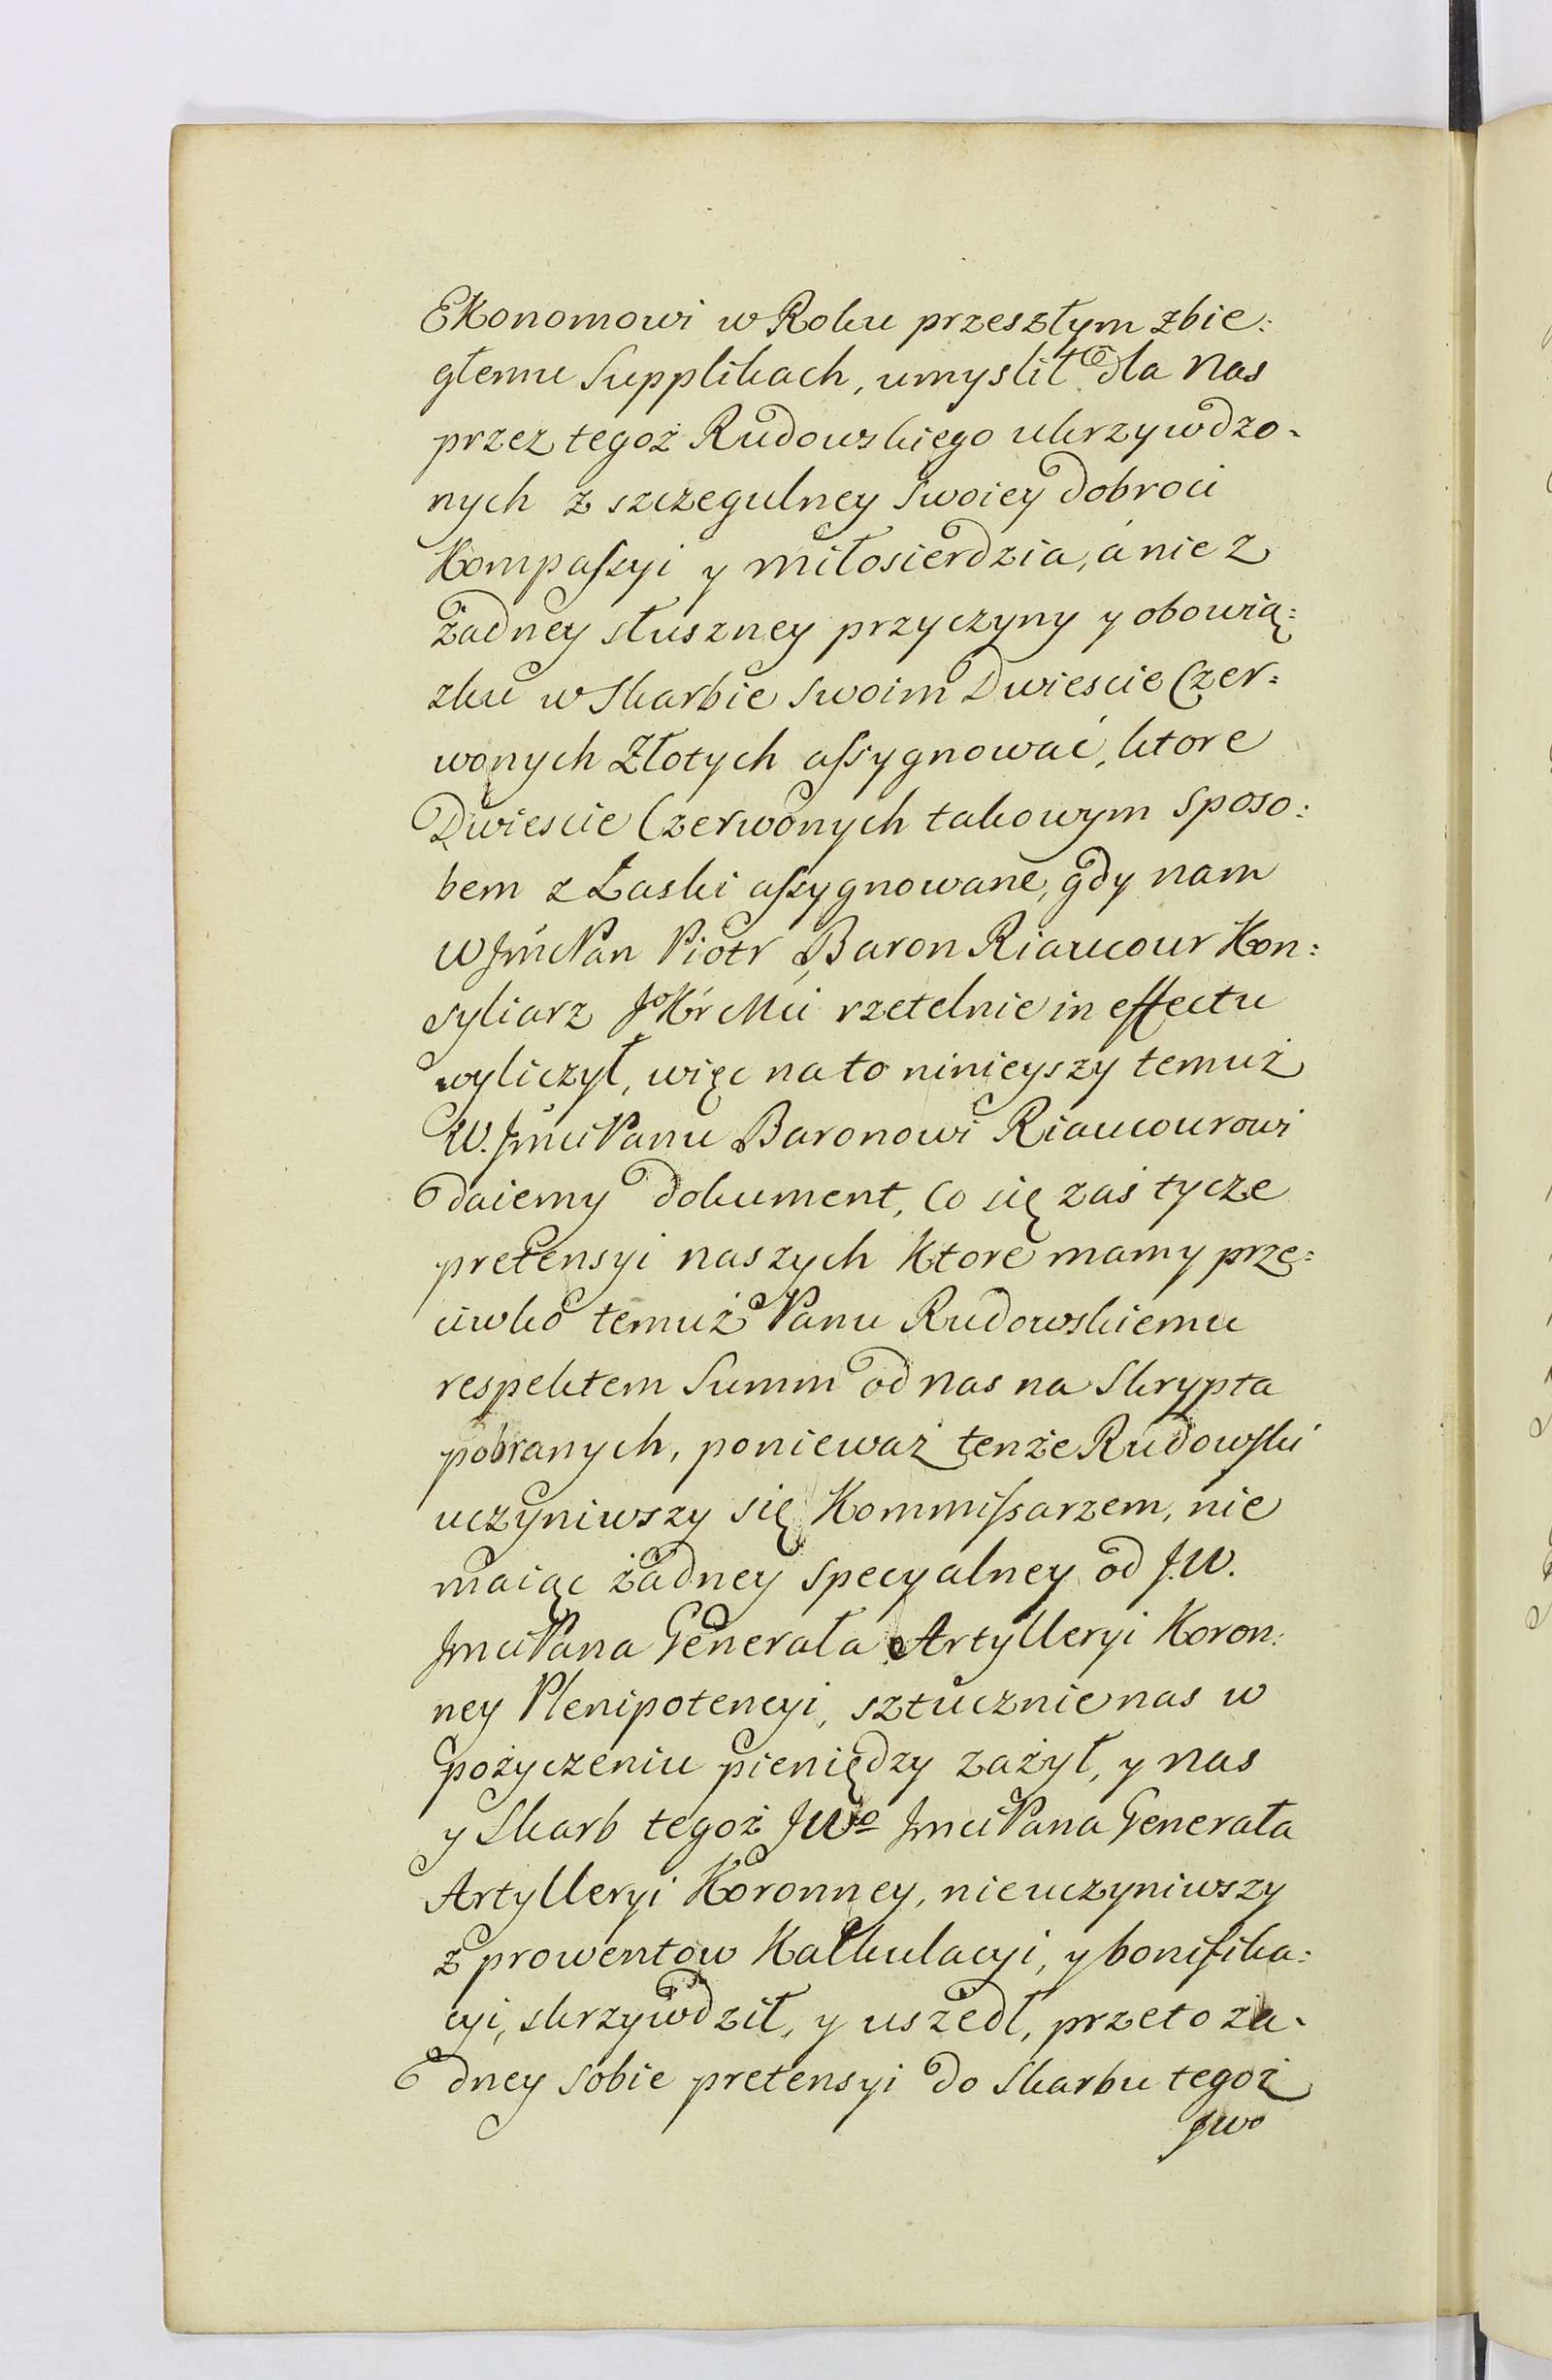 Ekonomowi w Roku przeszłym zbie:
głemu Supplikach, umyslił dla Nas
przez tegoż Rudowskiego ukrzywdzo-
nych z szczegulney swoiey dobroci
Kompaſsyi y miłosierdzia, á nie z
żadney słuszney przyczyny y obowią:
zku w Skarbie swoim Dwiescie Czer=
wonych Złotych aſsygnować, ktore
Dwiescie Czerwonych takowym sposo:
bem z Łaski aſsygnowane, gdy nam
W Jmć Pan Piotr Baron Riaucour Kon:
syliarz JoKr Mci rzetelnie in effectu
wyliczył, więc na to ninieyszy temuż
W. Jmci Panu Baronowi Riaucourowi
daiemy dokument, Co się zaś tycze
pretensyi naszych Ktore mamy prze=
ciwko temuż Panu Rudowskiemu
respektem Summ od nas na Skrypta
pobranych, ponieważ tenże Rudowſki
uczyniwszy się Kommiſsarzem, nie
maiąc żadney specyalney od J.W.
Jmci Pana Generała Artylleryi Koron:
ney Plenipotencyi, sztucznie nas w
pożyczeniu pieniędzy zażył, y nas
y Skarb tegoż JWo Jmci Pana Generała
Artylleryi Koronney, nie uczyniwszy
z prowentow Kalkulacyi, y bonifika:
cyi, skrzywdził, y uszedł, przeto ża-
dney sobie pretensyi do Skarbu tegoż
JWo